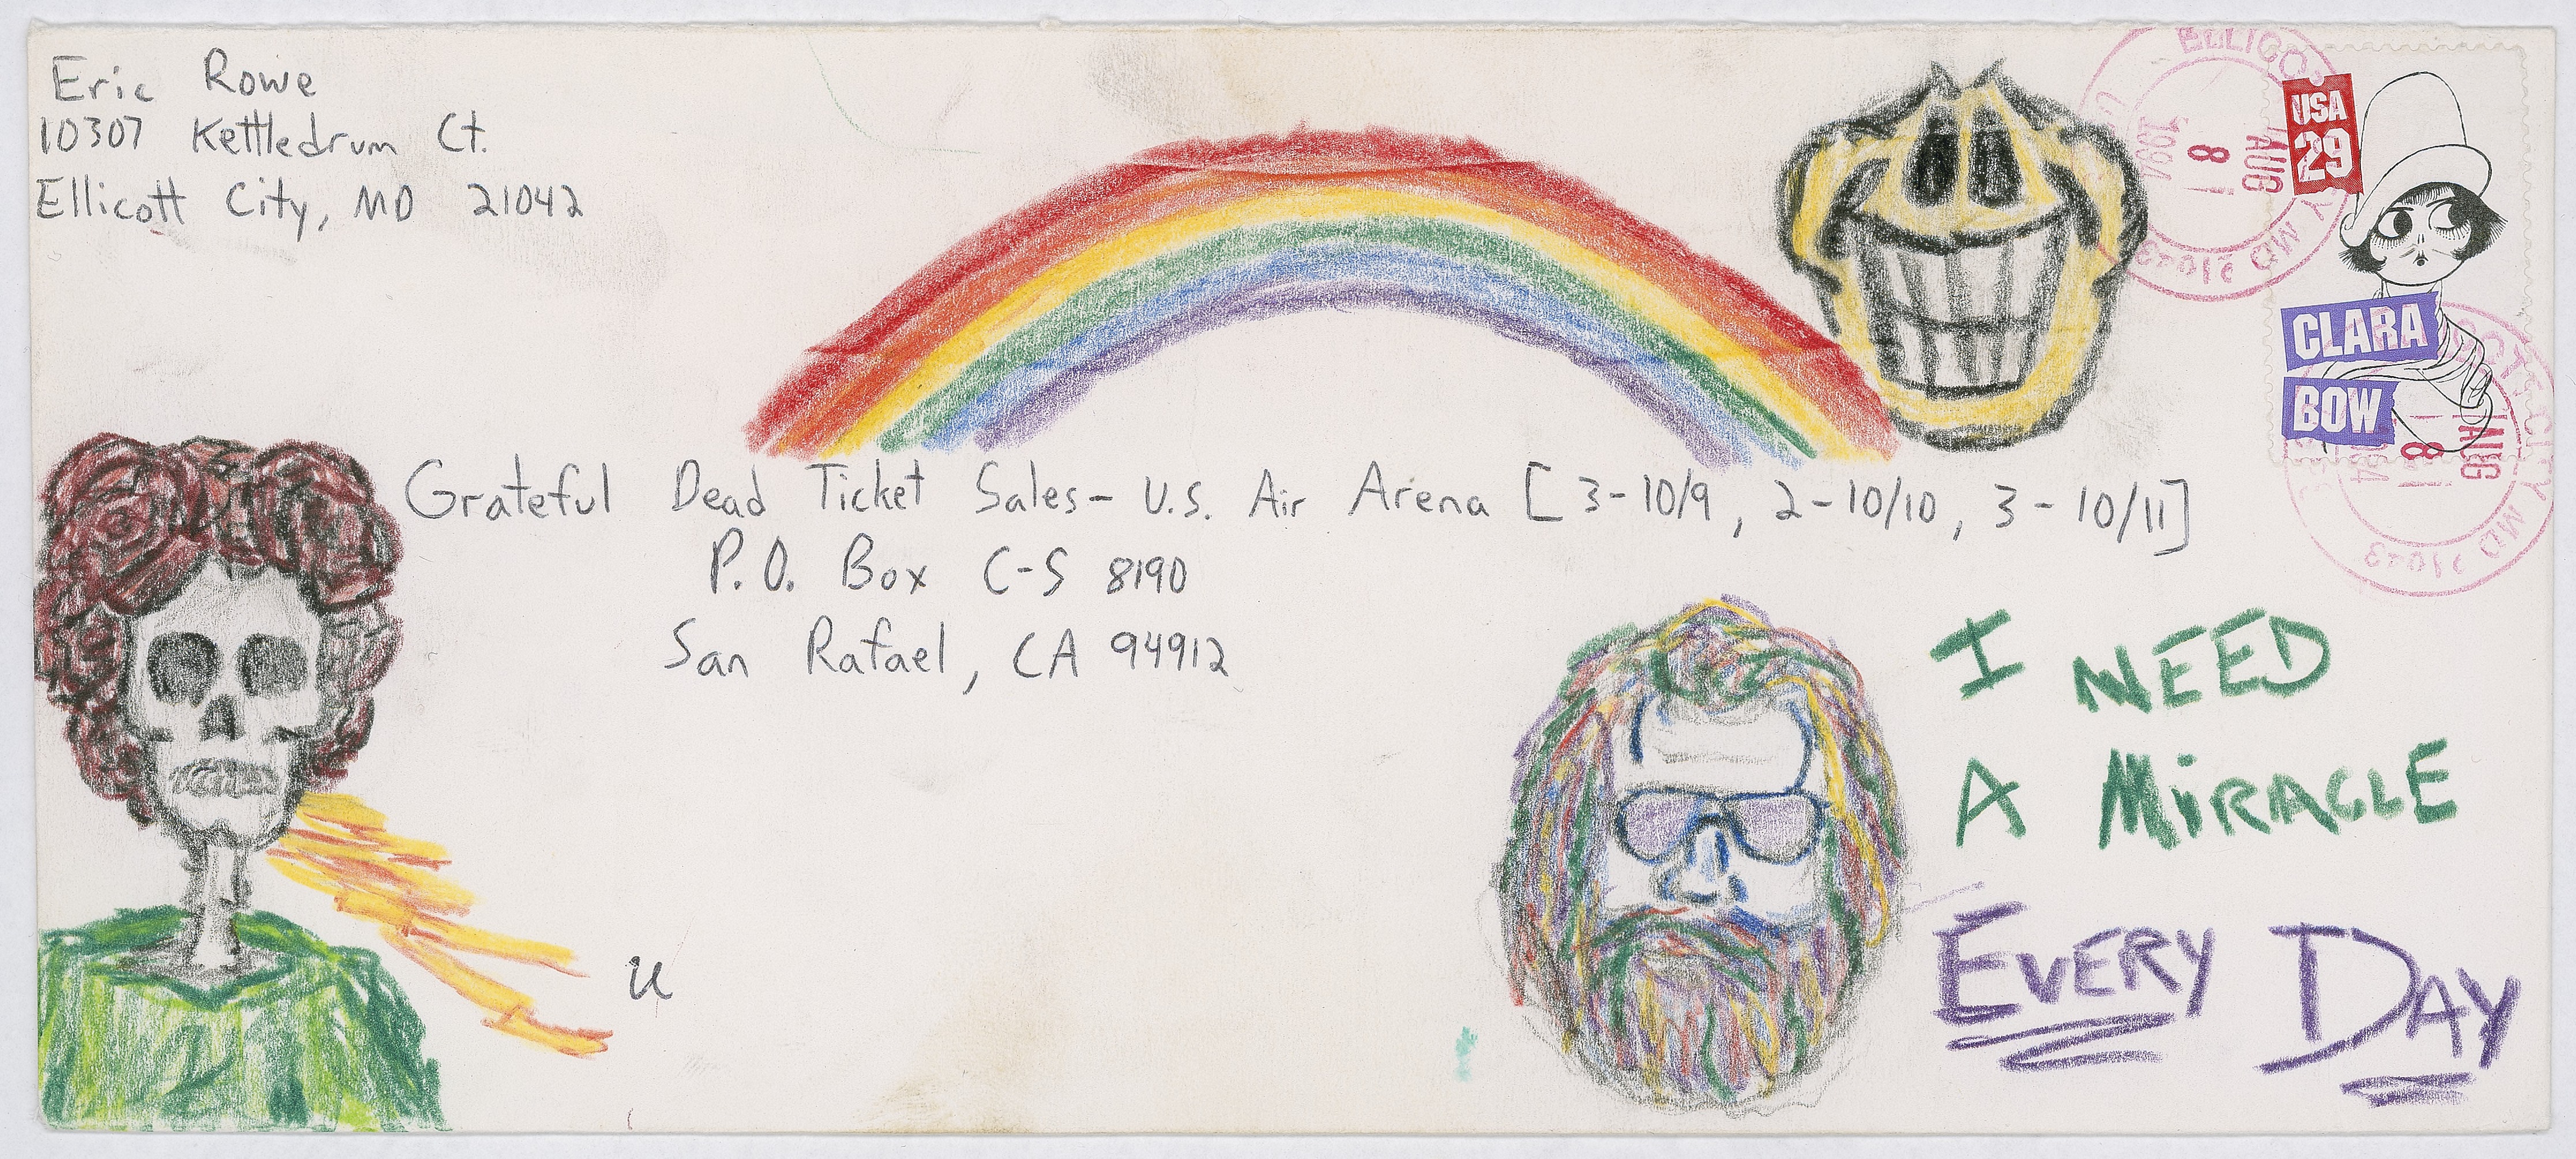 Eric Rowe
10307 Kettledrum Ct.
Ellicott City, MD 21042
USA
29
CLARA
BOW
AUG
8
1994
Grateful Dead Ticket Sales- U.S. Air Arena [3-10/9, 2-10/10, 3-10/11]
P.O. Box C-S 8190
San Rafael, CA 94912
I NEED
A MiRACLE
EVERY DAY